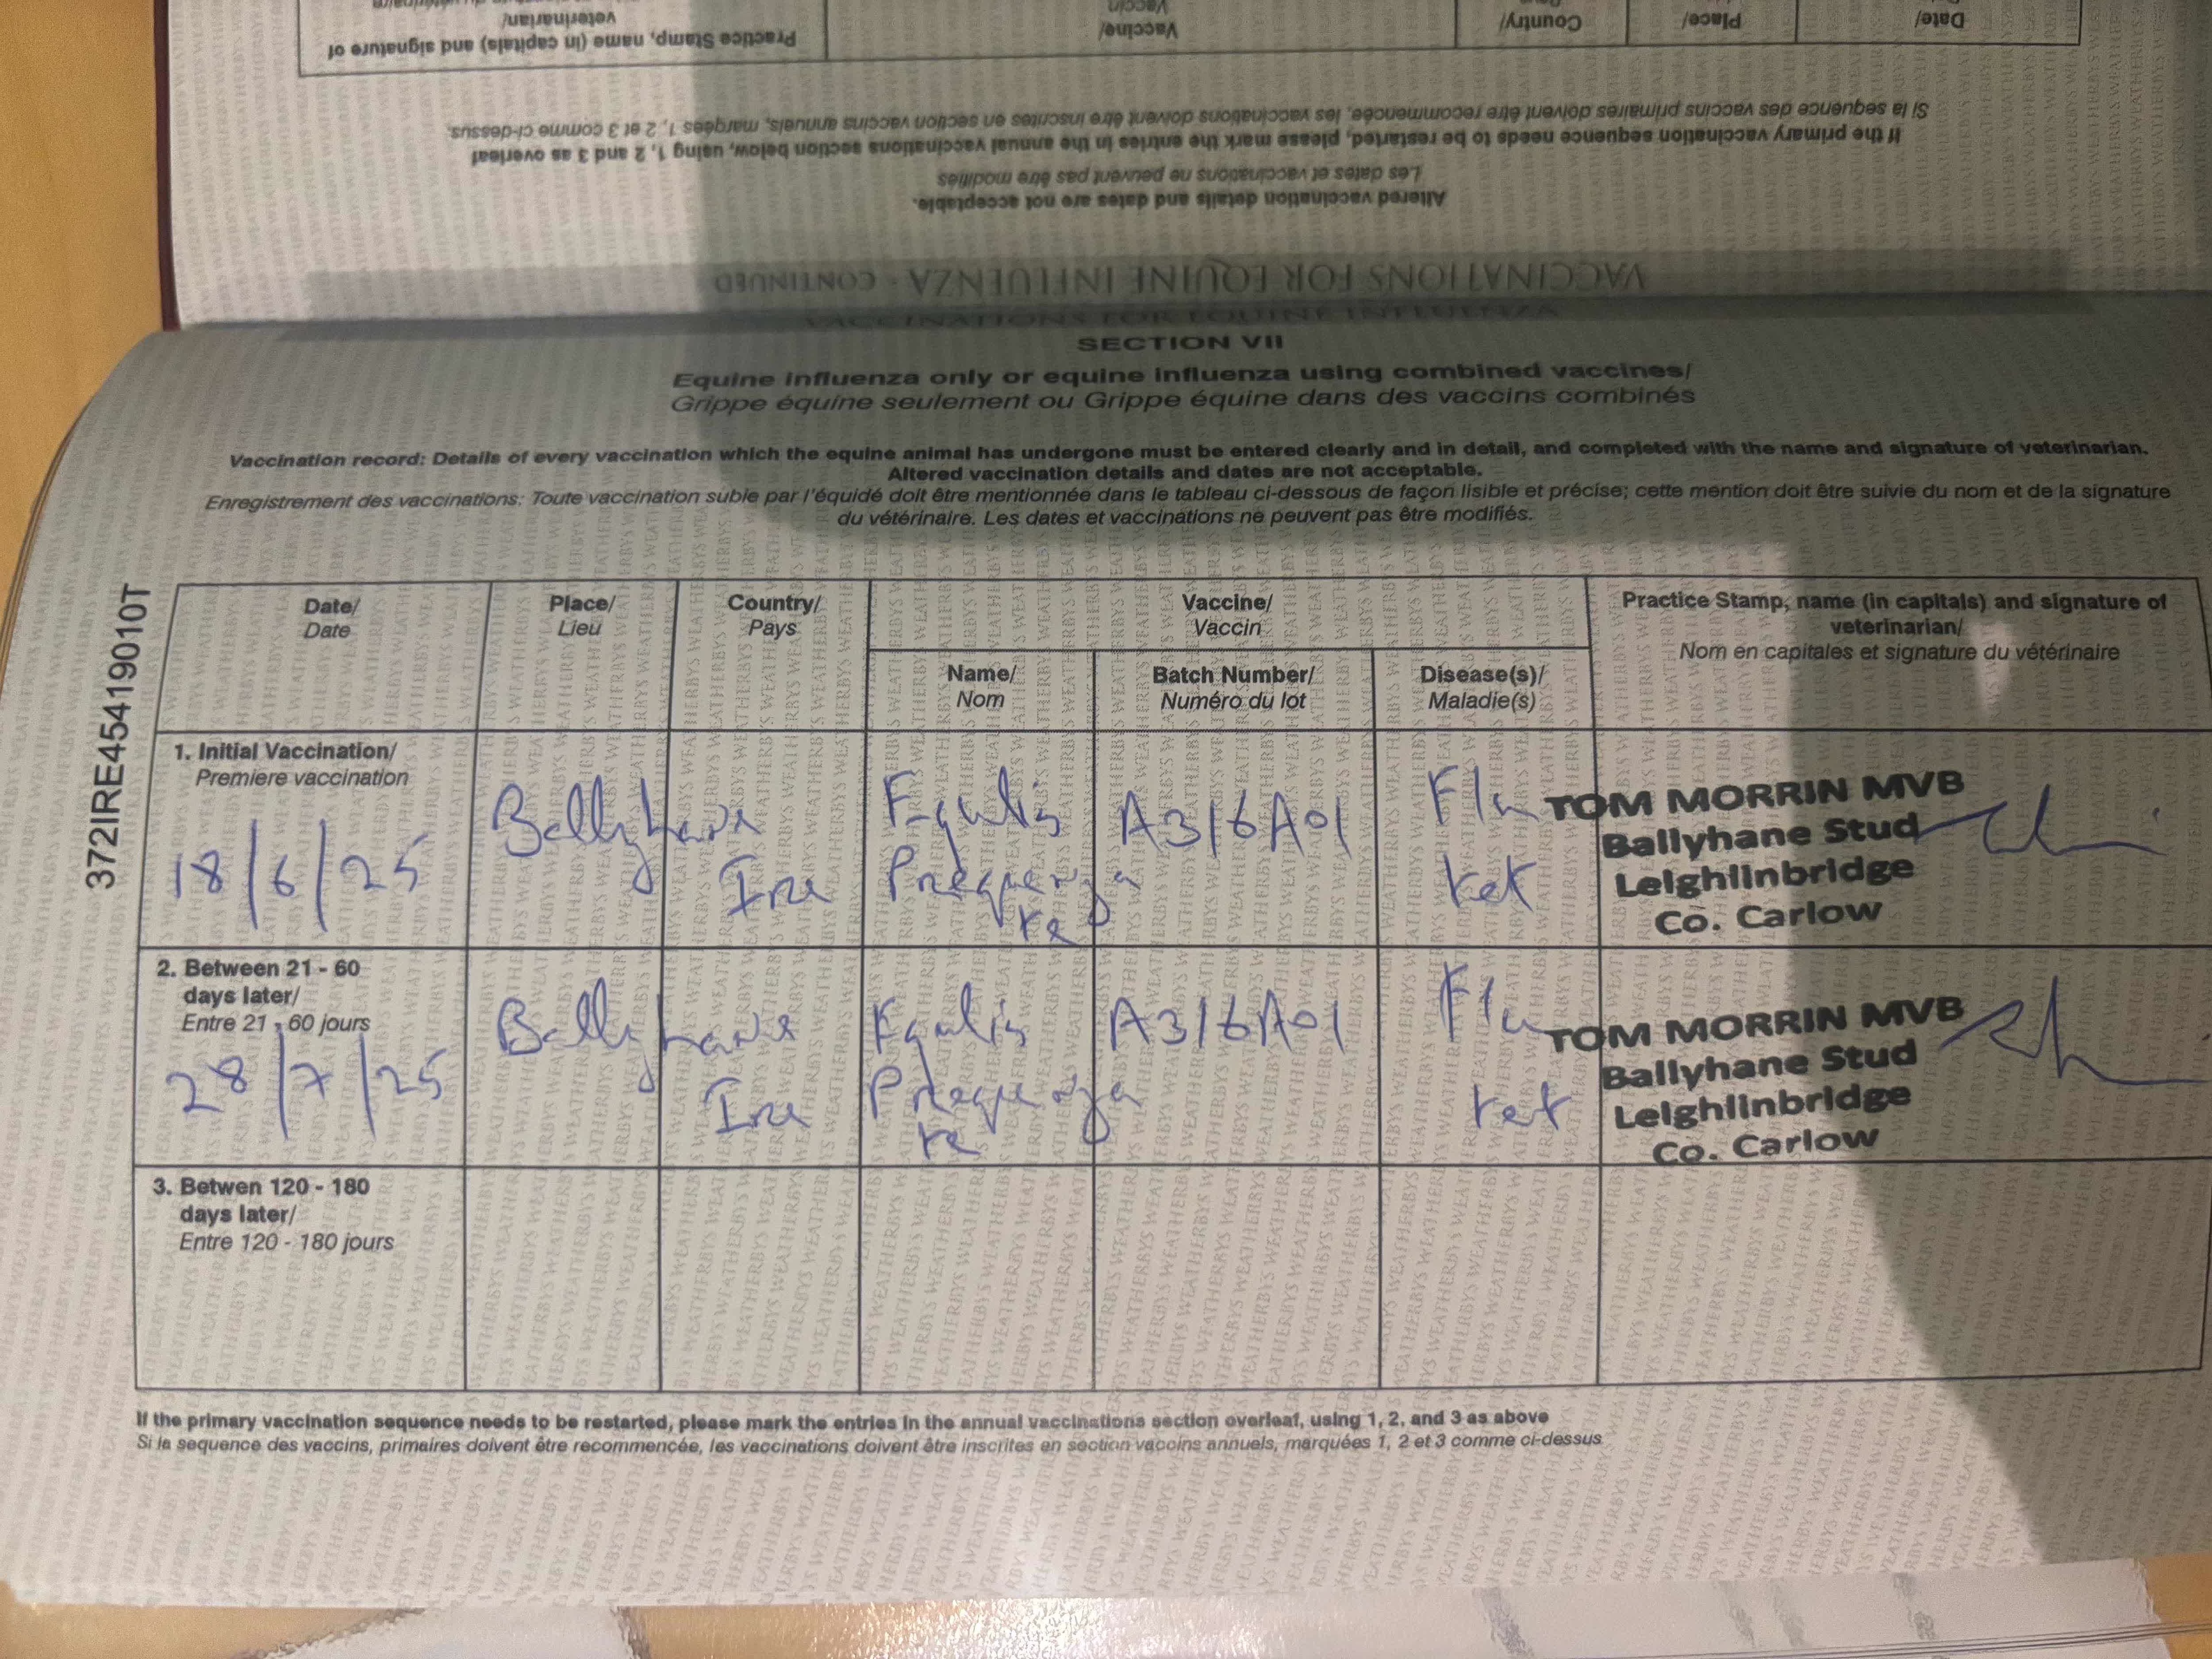 Date/
Place/
Country/
Vaccine/
Vaccin
Practice Stamp, name (in capitals) and signature of
veterinarian/
Si la sequence des vaccins primaires doivent être recommencée, les vaccinations doivent être inscrites en section vaccins annuels, marqées 1, 2 et 3 comme ci-dessus.
If the primary vaccination sequence needs to be restarted, please mark the entries in the annual vaccinations section below, using 1, 2 and 3 as overleaf
Les dates et vaccinations ne peuvent pas être modifiés
Altered vaccination details and dates are not acceptable.
VACCINATIONS FOR EQUINE INFLUENZA - CONTINUED
VACCINATIONS FOR EQUINE INFLUENZA
SECTION VII
Equine influenza only or equine influenza using combined vaccines/
Grippe équine seulement ou Grippe équine dans des vaccins combinés
Vaccination record: Details of every vaccination which the equine animal has undergone must be entered clearly and in detail, and completed with the name and signature of veterinarian.
Altered vaccination details and dates are not acceptable.
Enregistrement des vaccinations: Toute vaccination subie par l'équidé doit être mentionnée dans le tableau ci-dessous de façon lisible et précise; cette mention doit être suivie du nom et de la signature
du vétérinaire. Les dates et vaccinations ne peuvent pas être modifiés.
372IRE45419010T
Date/
Date
Place/
Lieu
Country/
Pays
Vaccine/
Vaccin
Name/
Nom
Batch Number/
Numéro du lot
Disease(s)/
Maladie(s)
Practice Stamp, name (in capitals) and signature of
veterinarian/
Nom en capitales et signature du vétérinaire
1. Initial Vaccination/
Premiere vaccination
18/6/25
Ballyhane
Ire
Equilis
Prequenza
te
A316A01
Flu
tet
TOM MORRIN MVB
Ballyhane Stud
Leighlinbridge
Co. Carlow
2. Between 21 - 60
days later/
Entre 21 - 60 jours
28/7/25
Ballyhane
Ire
Equilis
Prequenza
te
A316A01
Flu
tet
TOM MORRIN MVB
Ballyhane Stud
Leighlinbridge
Co. Carlow
3. Betwen 120 - 180
days later/
Entre 120 - 180 jours
If the primary vaccination sequence needs to be restarted, please mark the entries in the annual vaccinations section overleaf, using 1, 2, and 3 as above
Si la sequence des vaccins, primaires doivent être recommencée, les vaccinations doivent être inscrites en section vaccins annuels, marquées 1, 2 et 3 comme ci-dessus